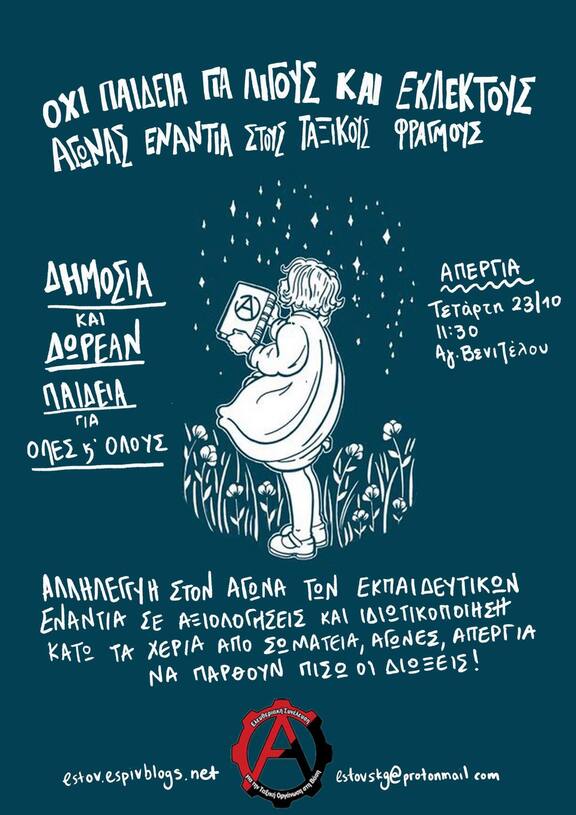 ΟΧΙ ΠΑΙΔΕΙΑ ΓΙΑ ΛΙΓΟΥΣ ΚΑΙ ΕΚΛΕΚΤΟΥΣ
ΑΓΩΝΑΣ ΕΝΑΝΤΙΑ ΣΤΟΥΣ ΤΑΞΙΚΟΥΣ ΦΡΑΓΜΟΥΣ
ΔΗΜΟΣΙΑ
ΚΑΙ
ΔΩΡΕΑΝ
ΠΑΙΔΕΙΑ
ΓΙΑ
ΟΛΕΣ κ' ΟΛΟΥΣ
ΑΠΕΡΓΙΑ
Τετάρτη 23/10
11:30
Αγ. Βενιζέλου
ΑΛΛΗΛΕΓΓΥΗ ΣΤΟΝ ΑΓΩΝΑ ΤΩΝ ΕΚΠΑΙΔΕΥΤΙΚΩΝ
ΕΝΑΝΤΙΑ ΣΕ ΑΞΙΟΛΟΓΗΣΕΙΣ ΚΑΙ ΙΔΙΩΤΙΚΟΠΟΙΗΣΗ
ΚΑΤΩ ΤΑ ΧΕΡΙΑ ΑΠΟ ΣΩΜΑΤΕΙΑ, ΑΓΩΝΕΣ, ΑΠΕΡΓΙΑ
ΝΑ ΠΑΡΘΟΥΝ ΠΙΣΩ ΟΙ ΔΙΩΞΕΙΣ!
Ελευθεριακή Συνέλευση
για την Ταξική Οργάνωση στη Βάση
estov.espivblogs.net
estovskg@protonmail.com